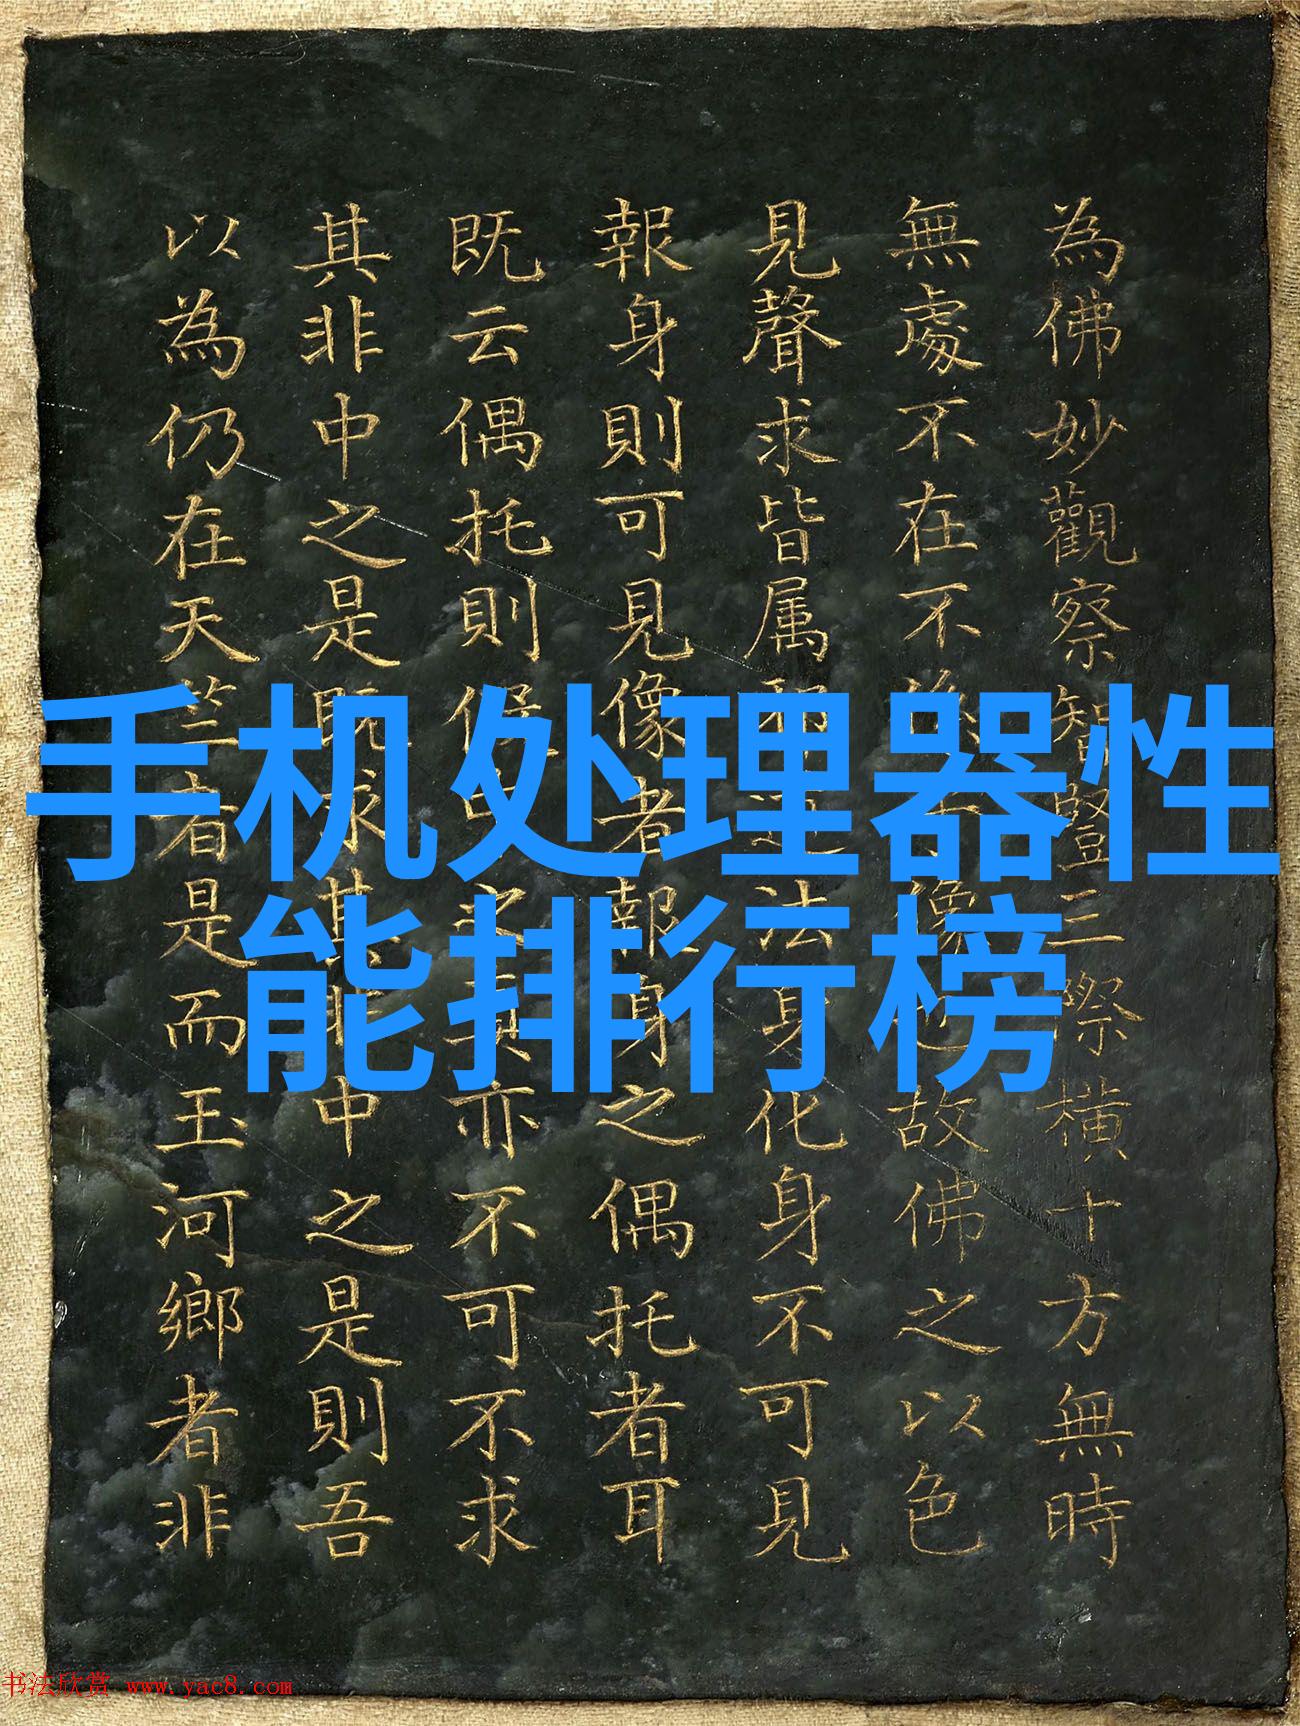 手机处理器性
能排行榜
為佛妙觀察智豎三際橫十方無時
無處不在不像故佛之以色
見聲求皆属邪道法身化身不可見
報身則可見像者報身之偶托者耳
既云偶托則亦不可不求
其非中之是既求其非中之是則吾
以為仍在天竺者是而玉河鄉者非
书法欣赏 www.yac8.com